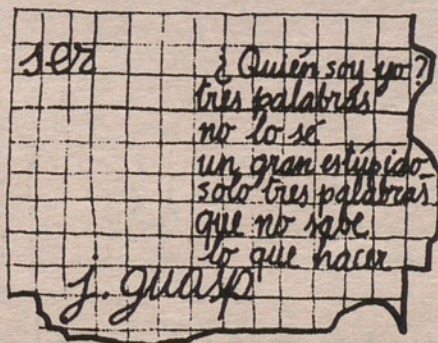 ser
¿Quién soy yo?
tres palabras
no lo sé
un gran estúpido
solo tres palabras
que no sabe
lo que hacer
j. guasp